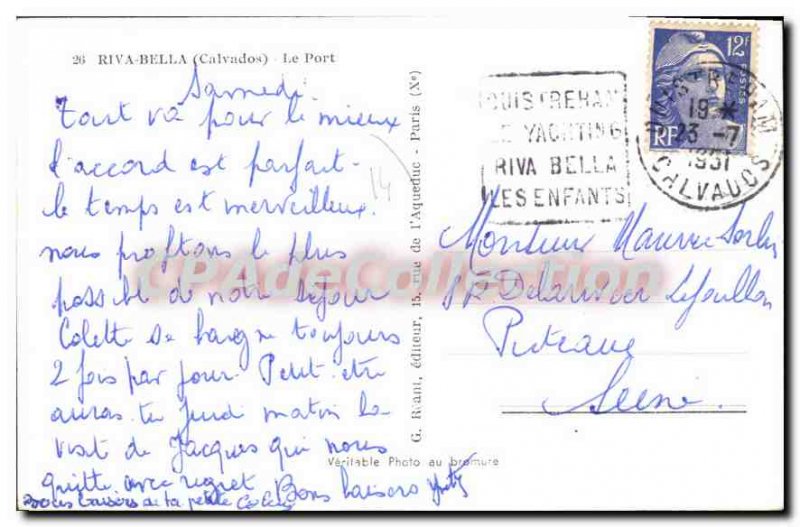 26 RIVA-BELLA (Calvados) - Le Port
Samedi
Tout va pour le mieux
l'accord est parfait-
le temps est merveilleux.
nous profitons le plus
possible de notre séjour
Colette se baigne toujours
2 fois par jour. Petit être
auras tu jeudi matin la
visit de Jacques qui nous
quitte avec regret Bons baisers
baisers de ta petite
14
G. Réant, éditeur, 15, rue de l'Aqueduc - Paris (Xe)
Véritable Photo au bromure
OUISTREHAM
LE YACHTING
RIVA BELLA
LES ENFANTS
12F
POSTES
RF
19 *
23 -7
1951
CALVADOS
Monsieur
Puteaux
Seine
CPAdeCollection